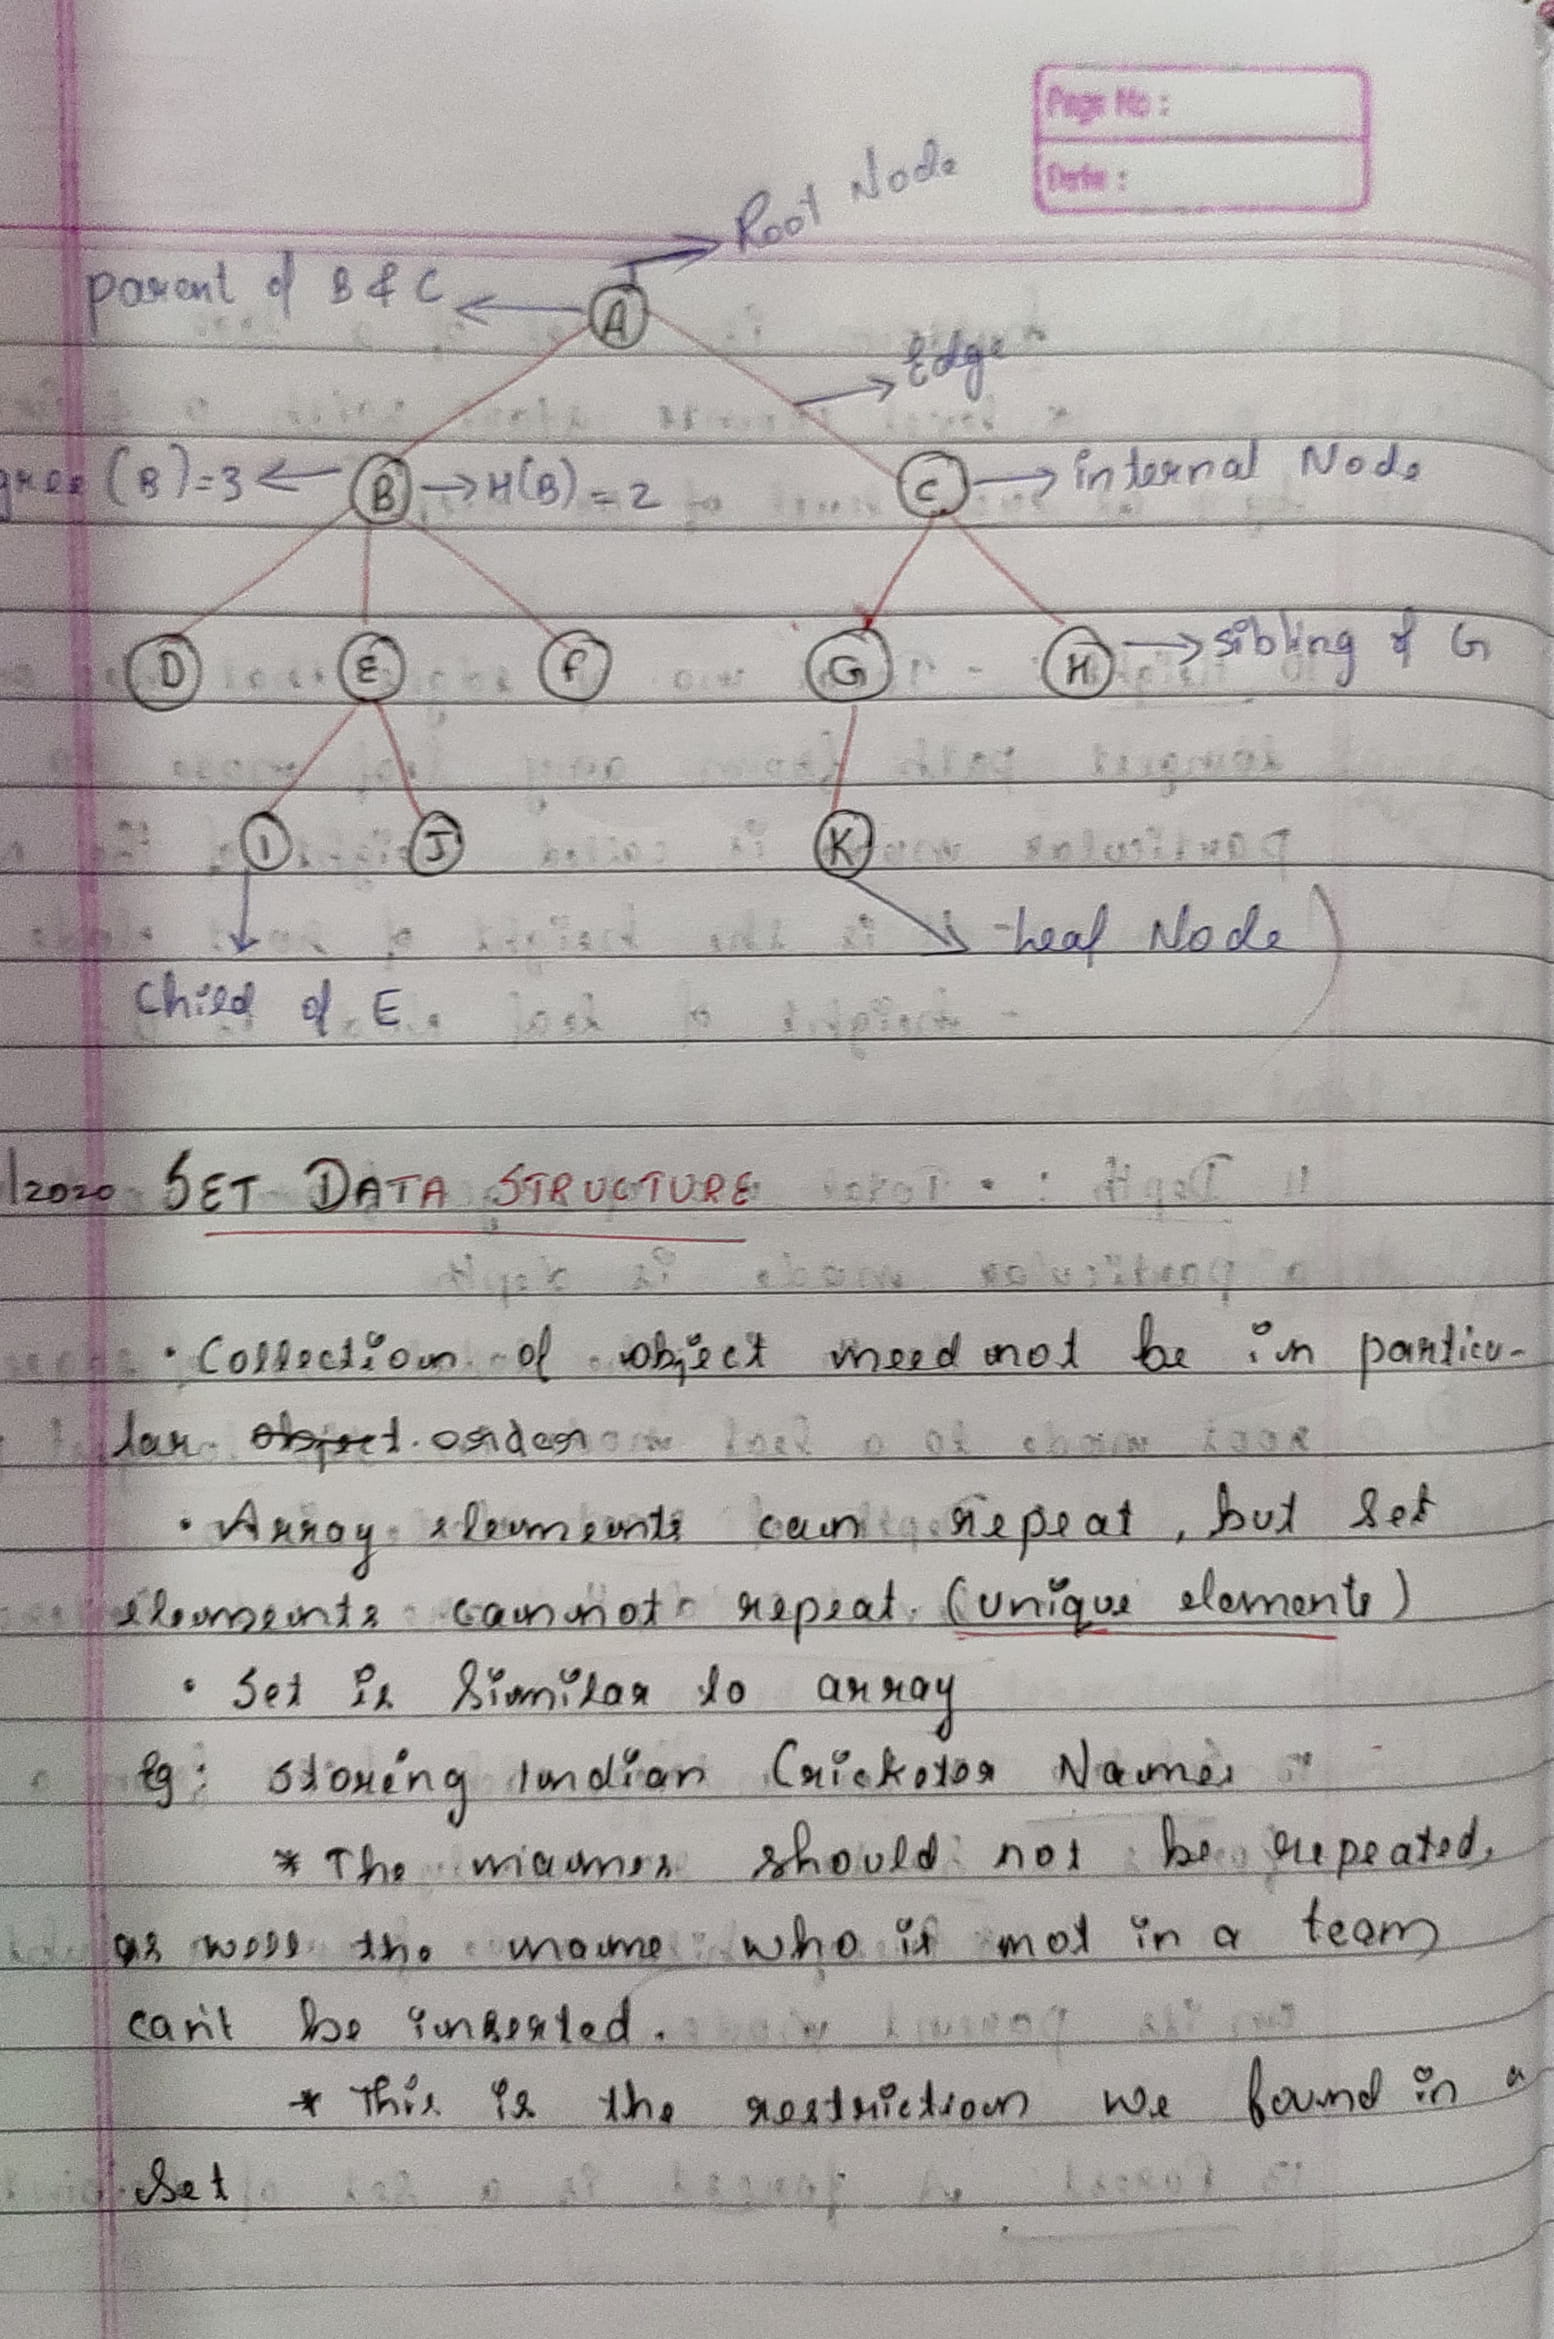 Page No :
Date :
Root Node
parent of B & C
A
Edge
gree (B)=3
B
H(B) = 2
C
internal Node
D
E
F
G
H
sibling of G
I
J
K
Leaf Node
Child of E
/2020 SET DATA STRUCTURE
• Collection of object need not be in particu-
lar object order
• Array elements can repeat, but set
elements cannot repeat. (unique elements)
• Set is similar to array
eg: storing Indian Cricketer Names
* The names should not be repeated,
as well the name who is not in a team
can't be inserted.
* This is the restriction we found in a
set